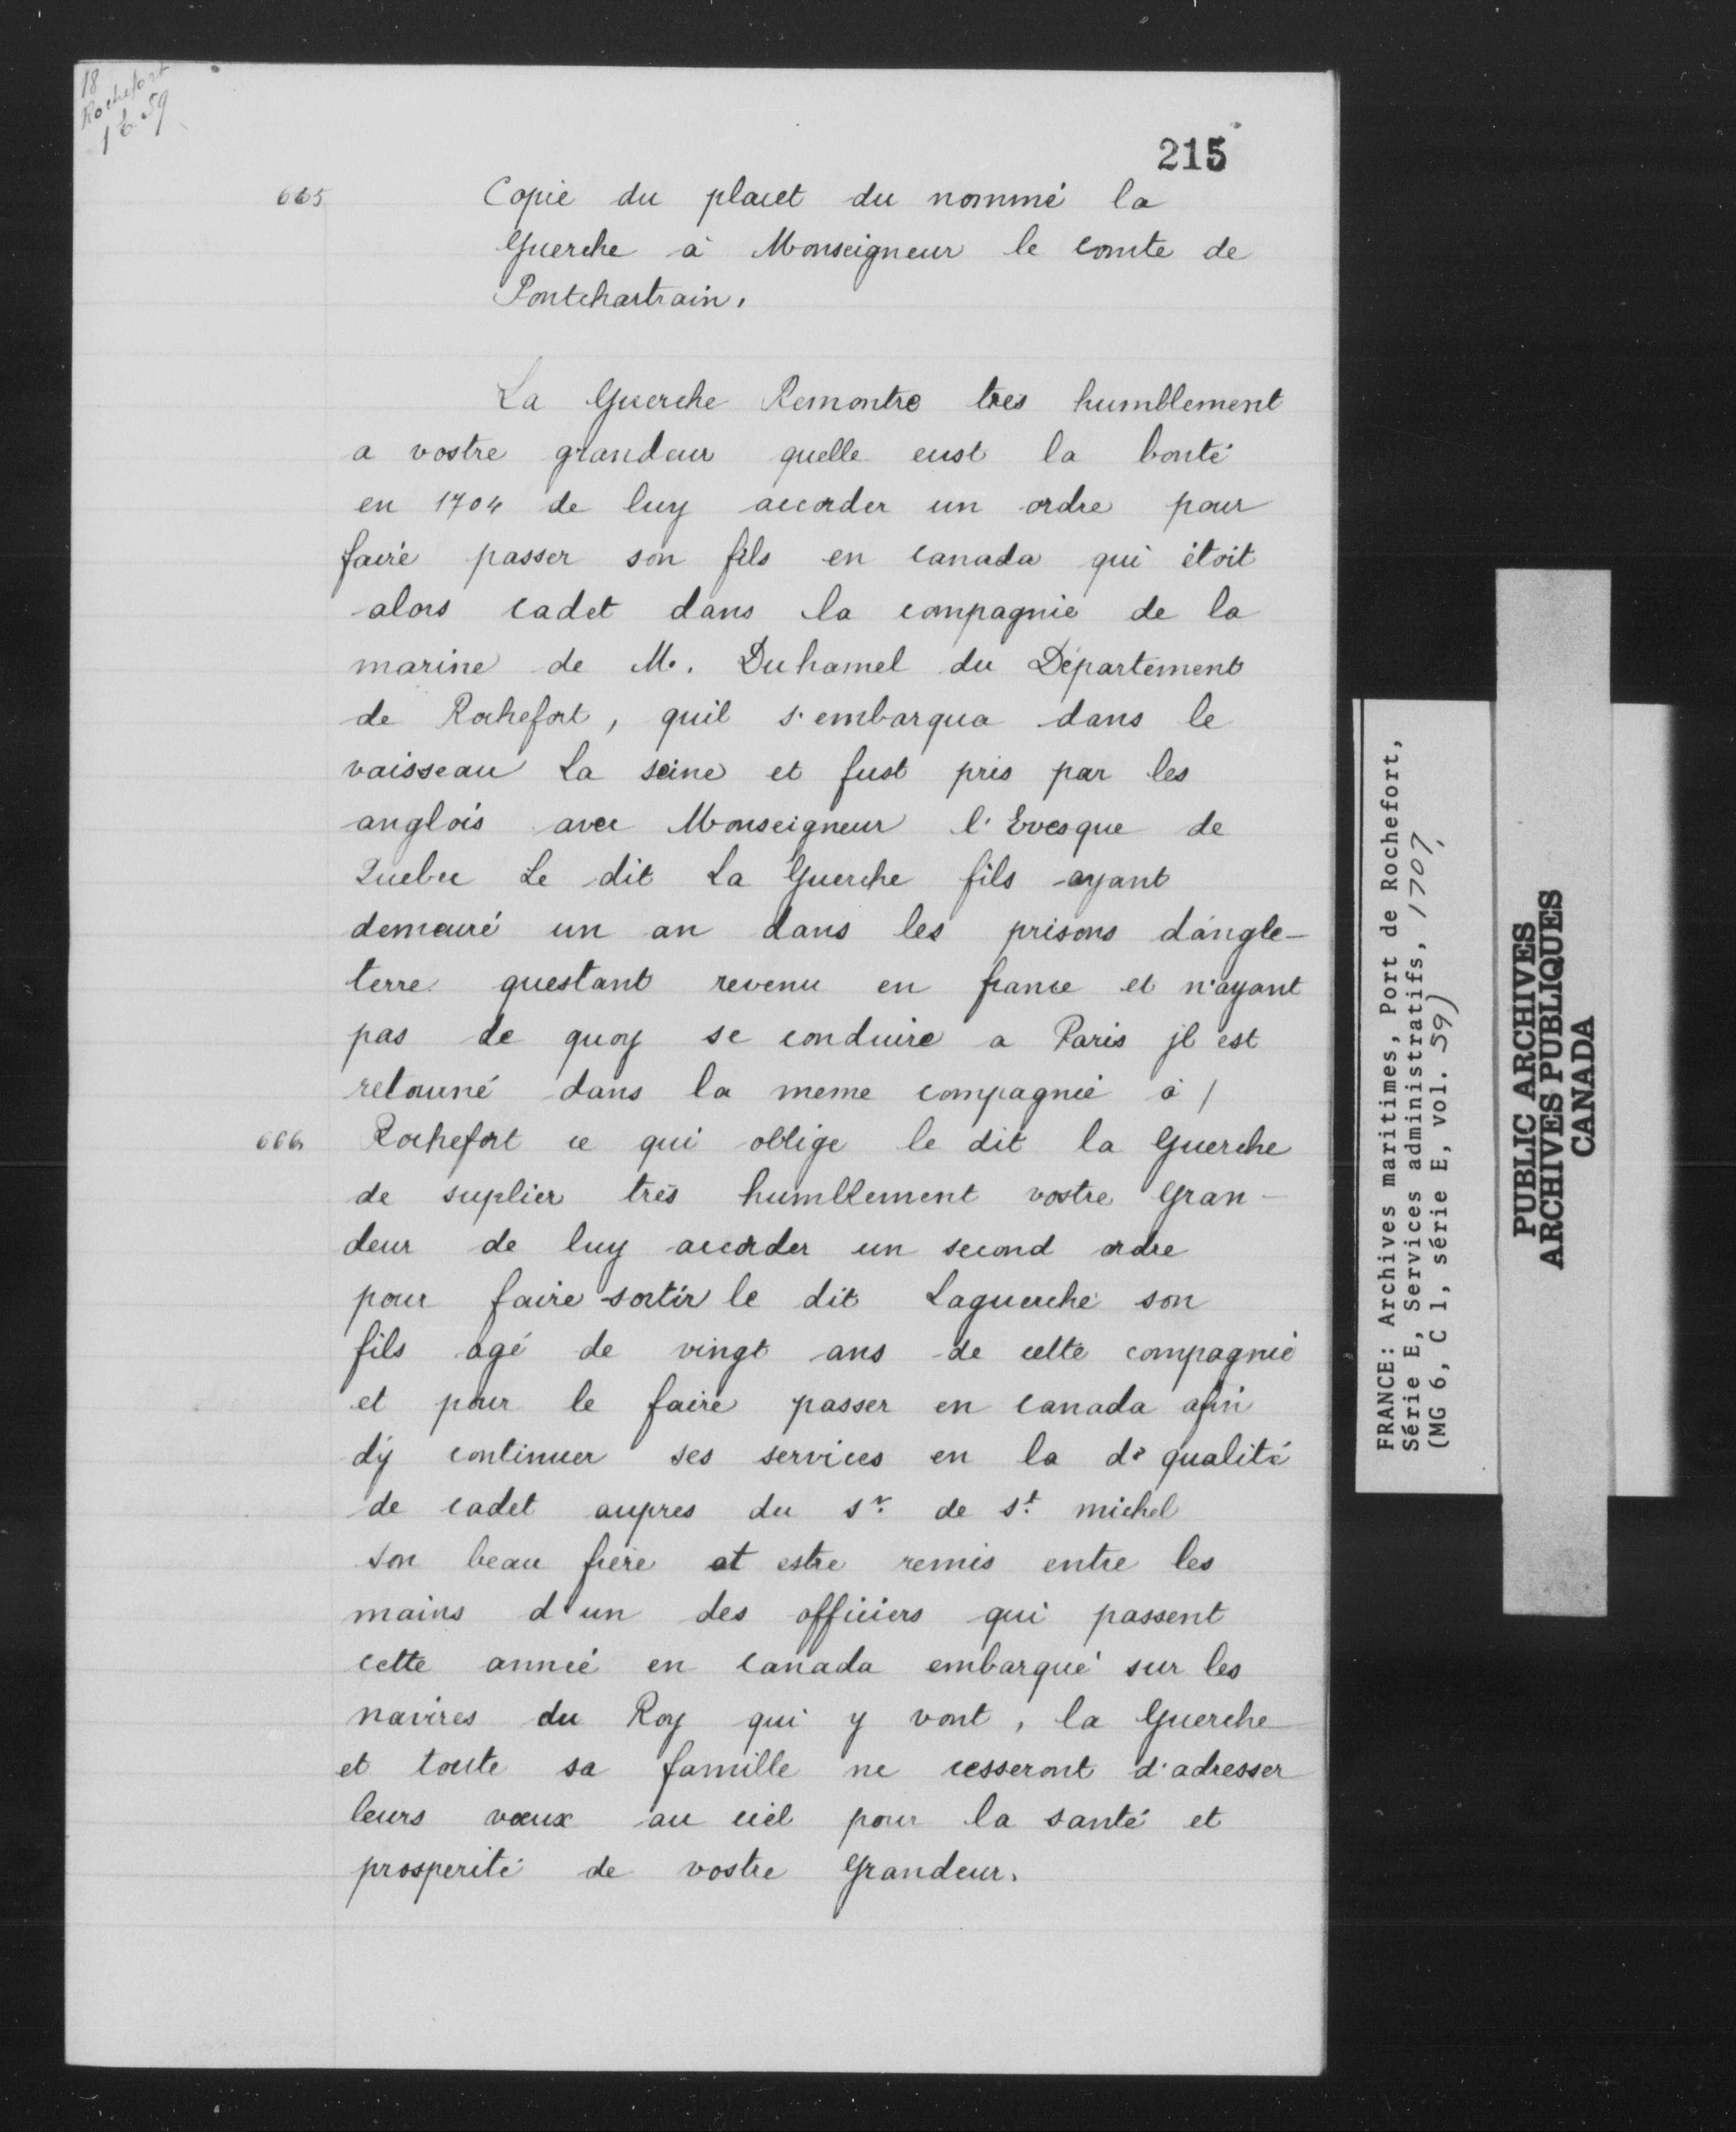 18
Rochefort
1 E. 59
215
665
Copie du placet du nommé la
Guerche à Monseigneur le comte de
Pontchartrain.
La Guerche Remontre tres humblement
a vostre grandeur quelle eust la bonté
en 1704 de luy accorder un ordre pour
faire passer son fils en canada qui étoit
alors cadet dans la compagnie de la
marine de M. Duhamel du Département
de Rochefort, quil s'embarqua dans le
vaisseau La seine et fust pris par les
anglois avec Monseigneur l'Evesque de
Quebec Le dit La Guerche fils ayant
demeuré un an dans les prisons d'angle-
terre questant revenu en france et n'ayant
pas de quoy se conduire a Paris jl est
retourné dans la meme compagnie à /
666
Rochefort ce qui oblige le dit la Guerche
de suplier très humblement vostre Gran-
deur de luy accorder un second ordre
pour faire sortir le dit Laguerche son
fils agé de vingt ans de cette compagnie
et pour le faire passer en canada afin
d'y continuer ses services en la de qualité
de cadet aupres du sr. de st. michel
son beau frere et estre remis entre les
mains d'un des officiers qui passent
cette année en canada embarqué sur les
navires du Roy qui y vont, la Guerche
et toute sa famille ne cesseront d'adresser
leurs vœux au ciel pour la santé et
prosperité de vostre Grandeur.
FRANCE: Archives maritimes, Port de Rochefort,
Série E, Services administratifs, 1707,
(MG 6, C 1, série E, vol. 59)
PUBLIC ARCHIVES
ARCHIVES PUBLIQUES
CANADA